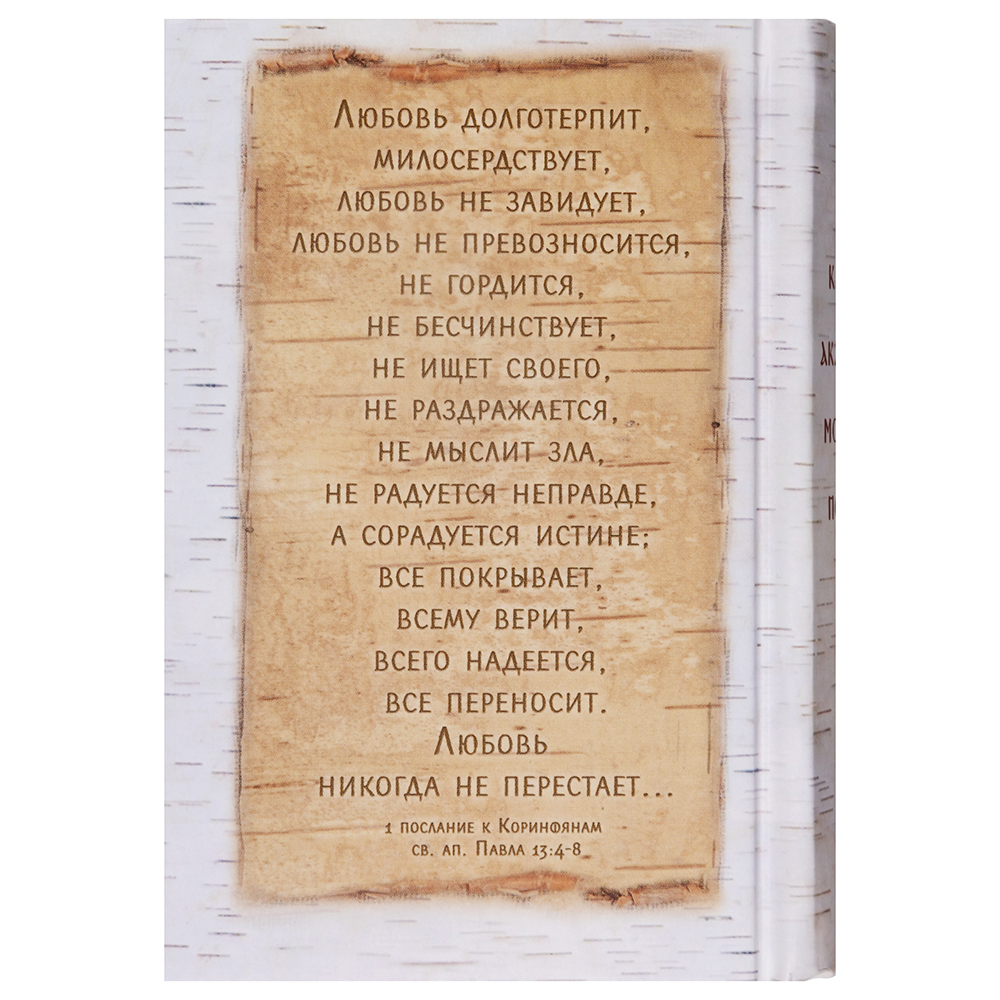 Любовь долготерпит,
милосердствует,
любовь не завидует,
любовь не превозносится,
не гордится,
не бесчинствует,
не ищет своего,
не раздражается,
не мыслит зла,
не радуется неправде,
а сорадуется истине;
все покрывает,
всему верит,
всего надеется,
все переносит.
Любовь
никогда не перестает...
1 послание к Коринфянам
св. ап. Павла 13:4-8